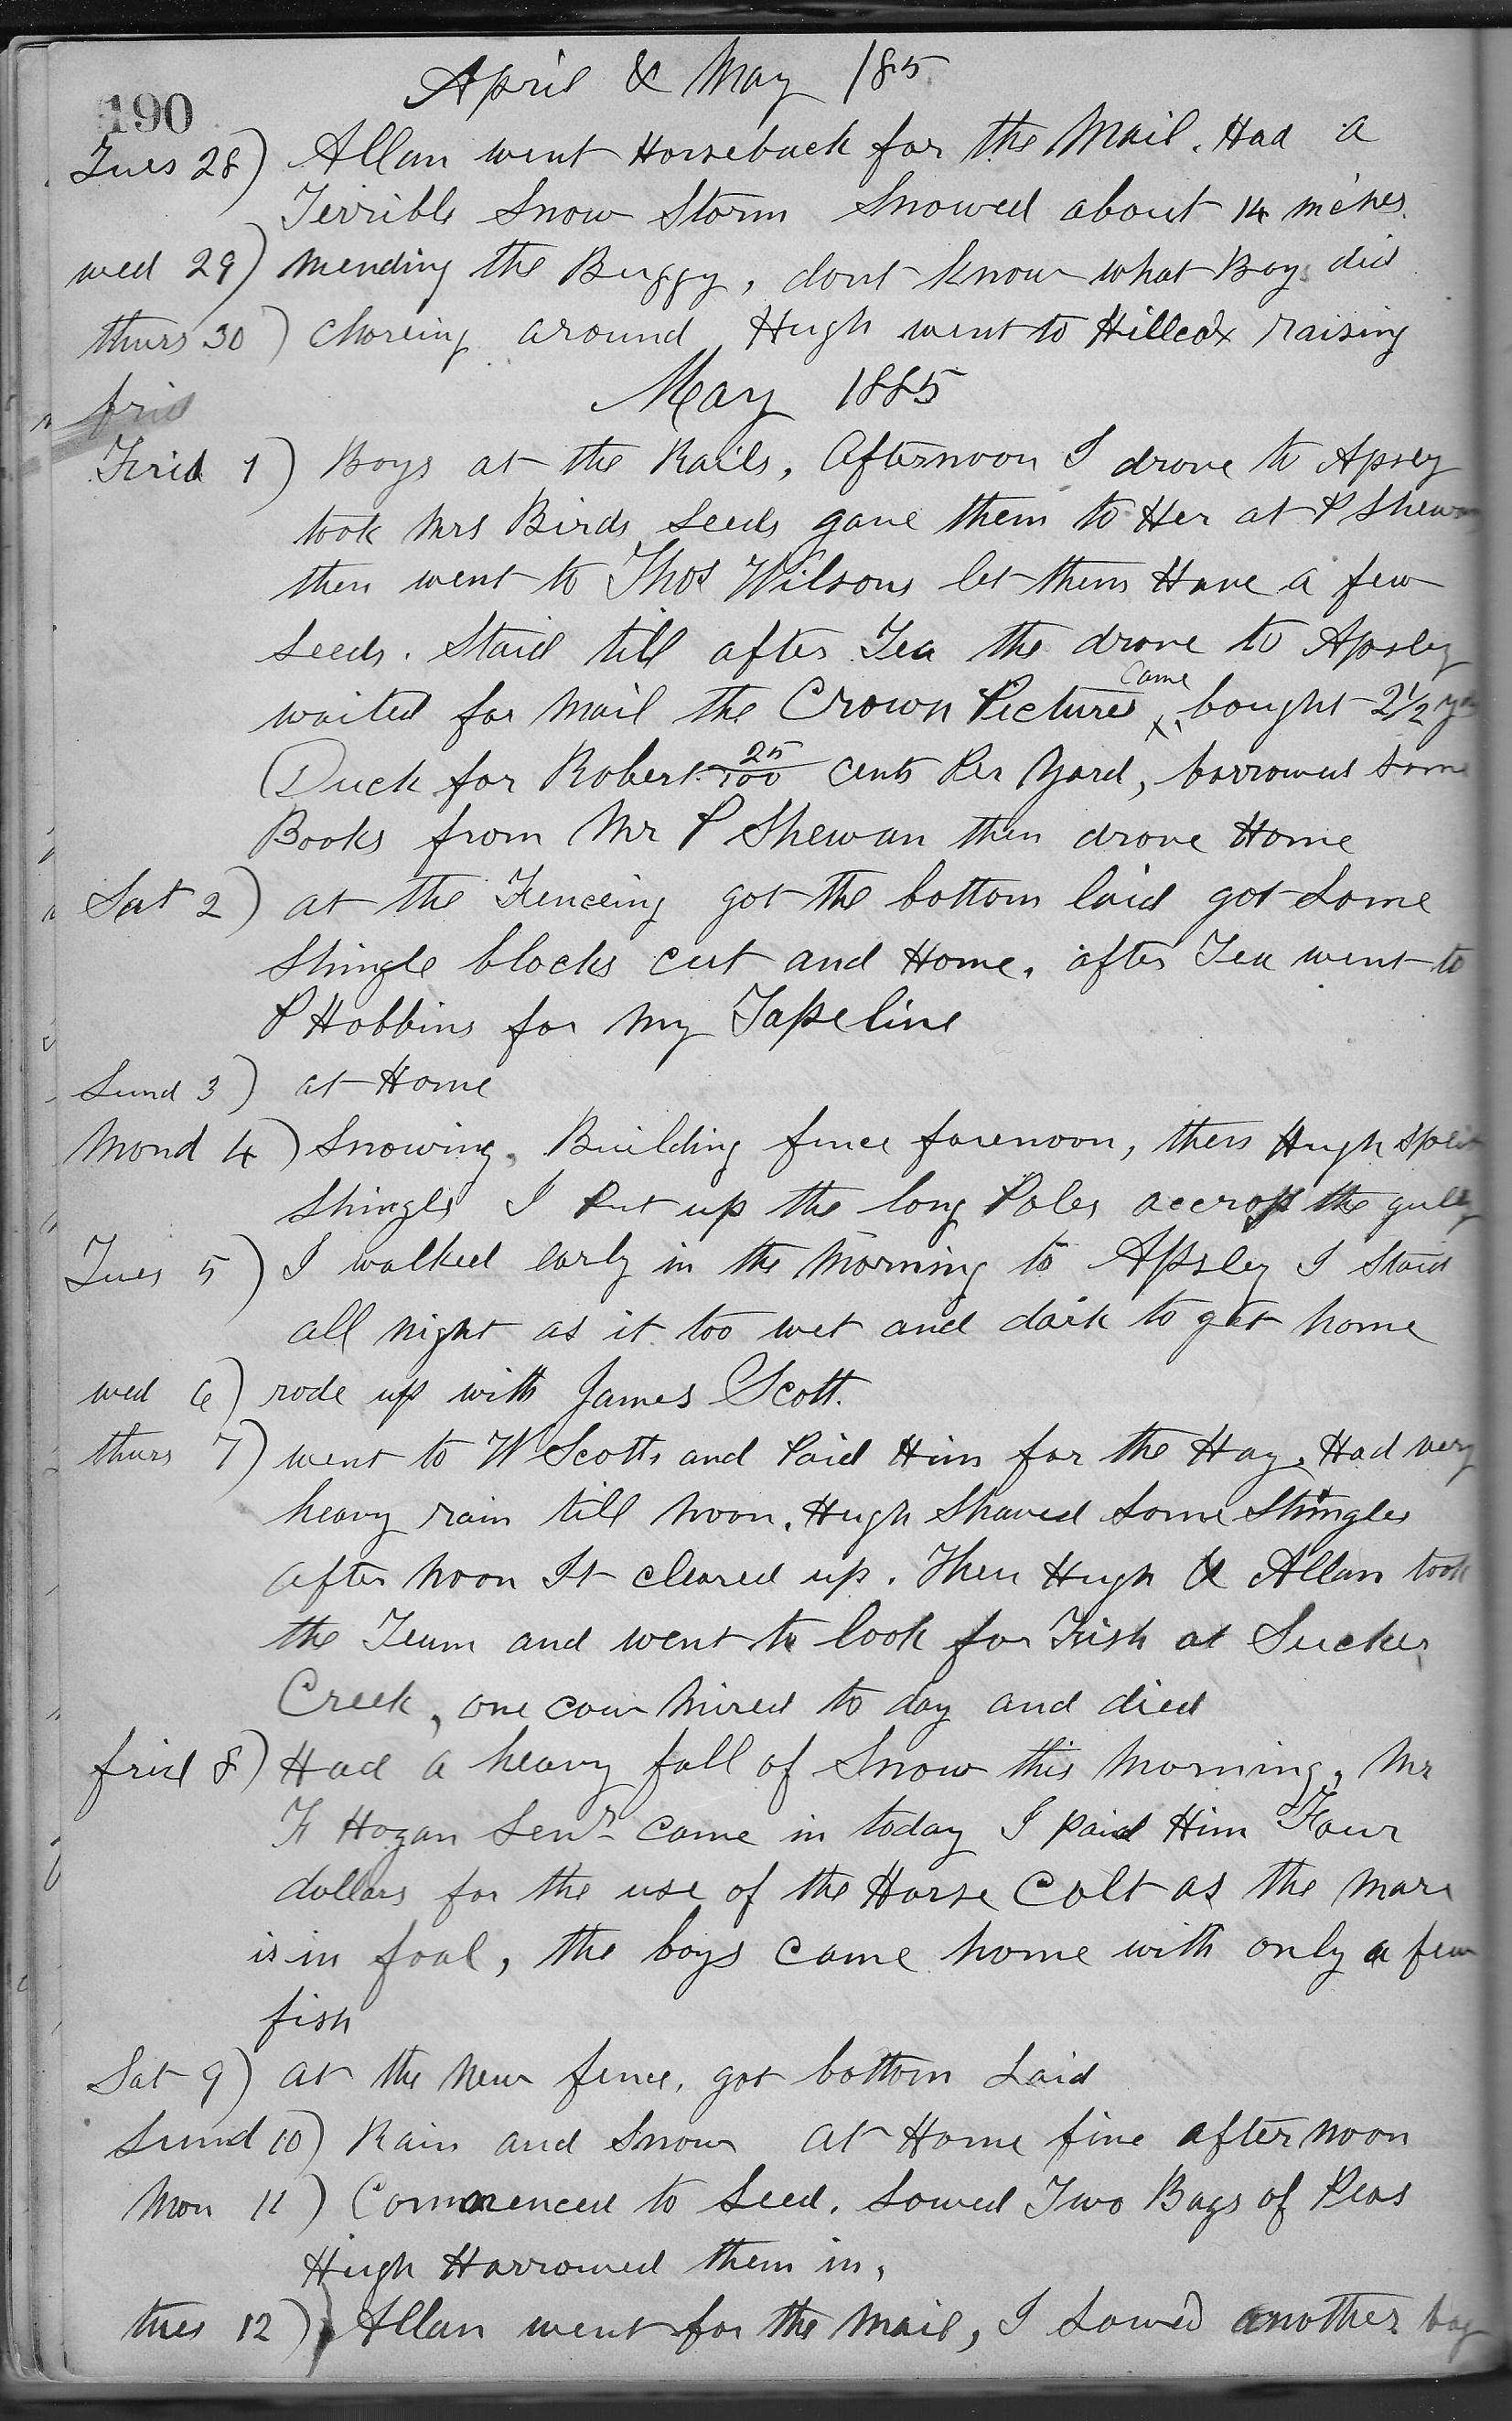 April & May 1885
190
Tues 28) Allan went Horseback for the Mail. Had a
Terrible Snow Storm Snowed about 14 inches.
wed 29) mending the Buggy, dont know what Boys did
thurs 30) choreing around Hugh went to Hillcox raising
May 1885
frid
Frid 1) Boys at the Rails, Afternoon I drove to Apsley
took Mrs Birds Seeds gave them to Her at P Shewan
then went to Thos Wilsons let them Have a few
Seeds. Staid till after Tea the drove to Apsley
came
waited for Mail the Crown Pictures x bought 2 1/2 yds
Duck for Robert 25/100 cents Per Yard, borrowed some
Books from Mr P Shewan then drove Home
Sat 2) at the Fenceing got the bottom laid got Some
Shingle blocks cut and Home. after Tea went to
P Hobbins for my Tapeline
Sund 3) at Home
Mond 4) Snowing, Building fence forenoon, then Hugh split
Shingls I Put up the long Poles accross the gully
Tues 5) I walked early in the Morning to Apsley I Staid
all night as it too wet and dark to get home
wed 6) rode up with James Scott.
thurs 7) went to W Scotts and Paid Him for the Hay. Had very
heavy rain till noon. Hugh Shaved Some Shingles
after noon It cleared up. Then Hugh & Allan took
the Team and went to look for Fish at Sucker
Creek, one cow mired to day and died
frid 8) Had a heavy fall of Snow this Morning, Mr
F Hogan Senr came in today I paid Him Four
dollars for the use of the Horse Colt as the mare
is in foal, the boys came home with only a few
fish
Sat 9) at the new fence, got bottom Laid
Sund 10) Rain and Snow at Home fine after noon
Mon 11) Commenced to Seed. Sowed Two Bags of Peas
Hugh Harrowed them in,
tues 12) Allan went for the Mail, I Sowed another bag